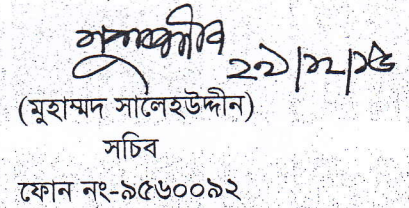 ২৯/১২/১৫
(মুহাম্মদ সালেহউদ্দীন)
সচিব
ফোন নং-৯৫৬০০৯২